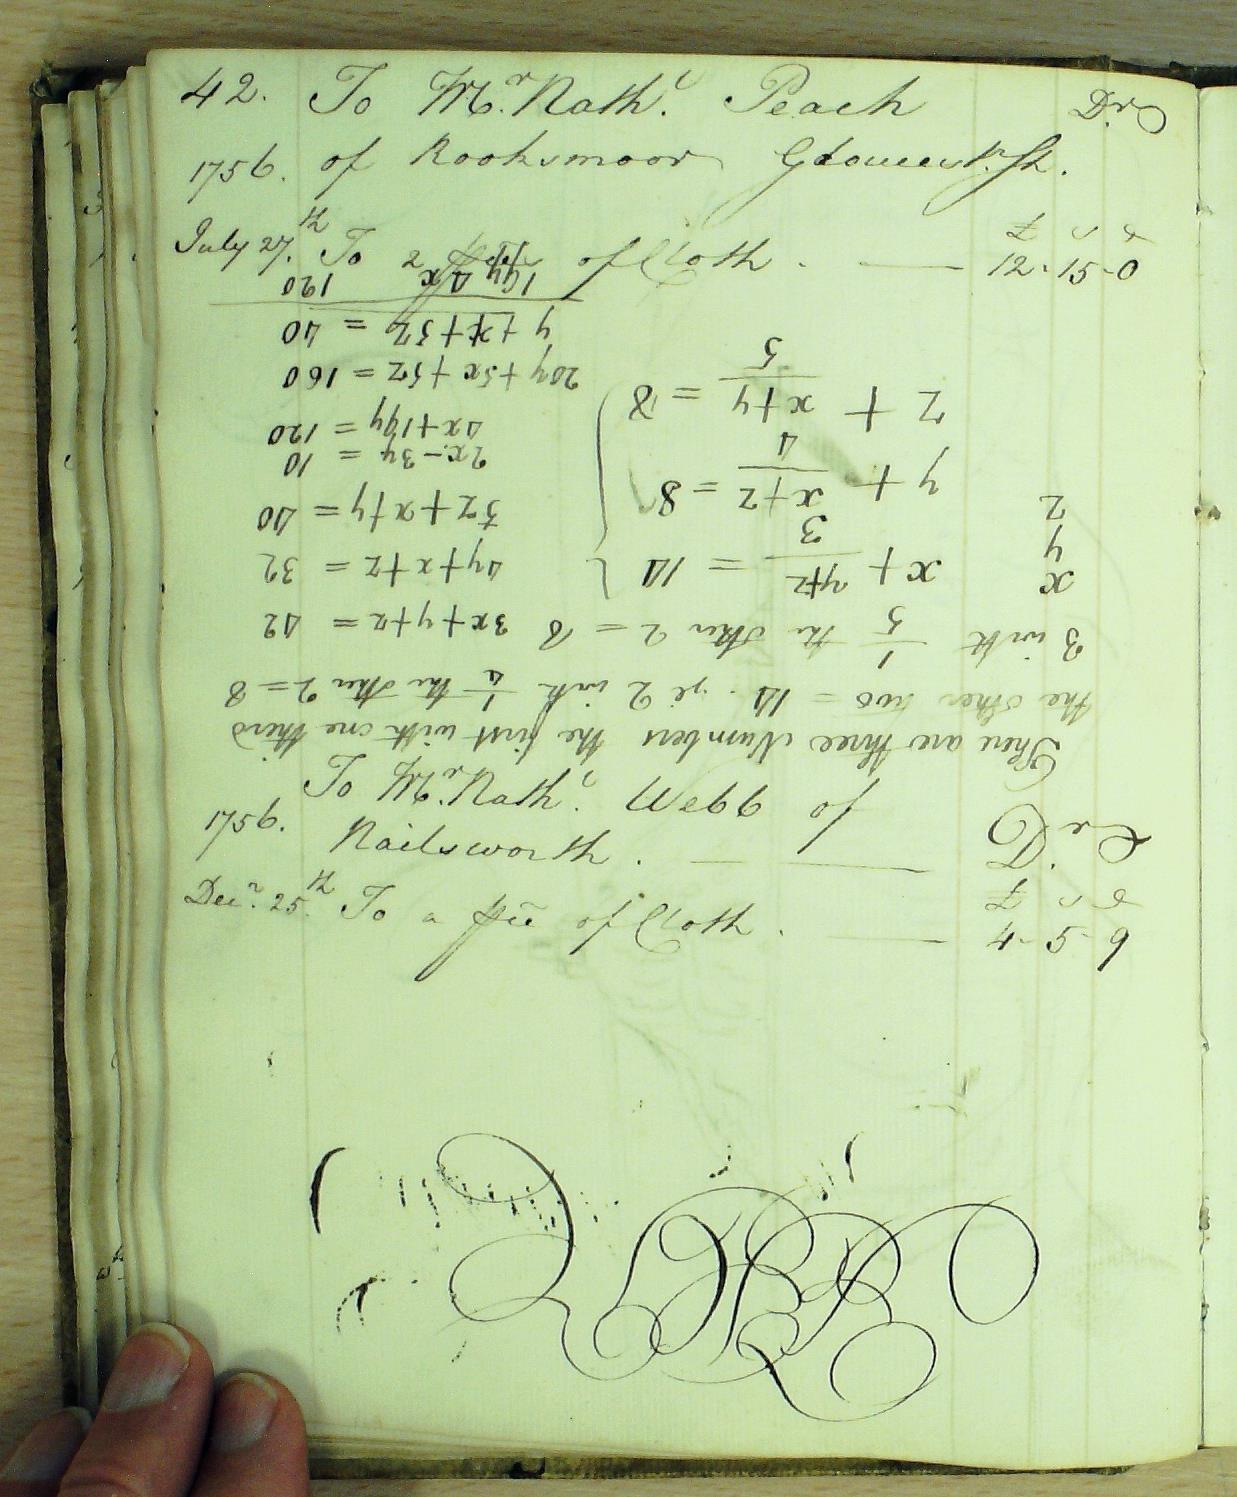 42. To Mr. Nathl. Peach Dr
1756. of Rooksmoor Gloucestr. Sh.
£ s d
July 27th. To 2 pces of Cloth . — 12-15-0
To Mr. Nathl. Webb of Dr
1756. Nailsworth .
£ s d
Decr. 25th. To a pce of Cloth . — 4-5-6
There are three Numbers the first with one third
the other two = 14 . ye 2 with 1/4 the other 2 = 8
3 with 1/5 the other 2 = 8 3x+y+z = 42
x x + y+z/3 = 14 4y+x+z = 32
y y + x+z/4 = 8 5z+x+y = 40
z 2x-3y = 10
z + x+y/5 = 8 4x+19y = 120
20y+5x+5z = 160
y+x+5z = 40
19y 4x 120